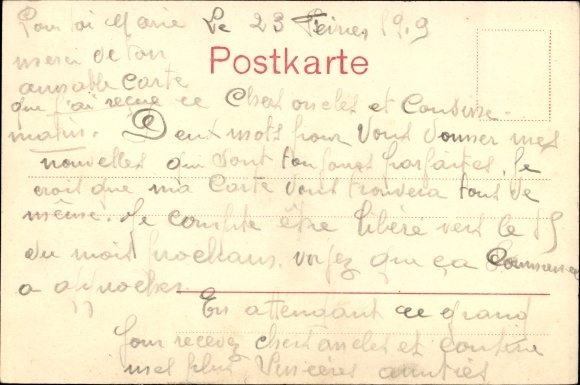 Le 23 Février 1919
Postkarte
Pour toi Marie
merci de ton
aimable carte
que j'ai reçue ce
matin.
Chers oncles et Cousine.
Deux mots pour vous donner mes
nouvelles qui sont toujours parfaites. Je
croit que ma carte vous trouvera tous de
même. Je compte être libéré vers le 15
du mois prochain, voyez que ça commence
a approcher.
En attendant ce grand
jour recevez chers oncles et cousine
mes plus sincères amitiés